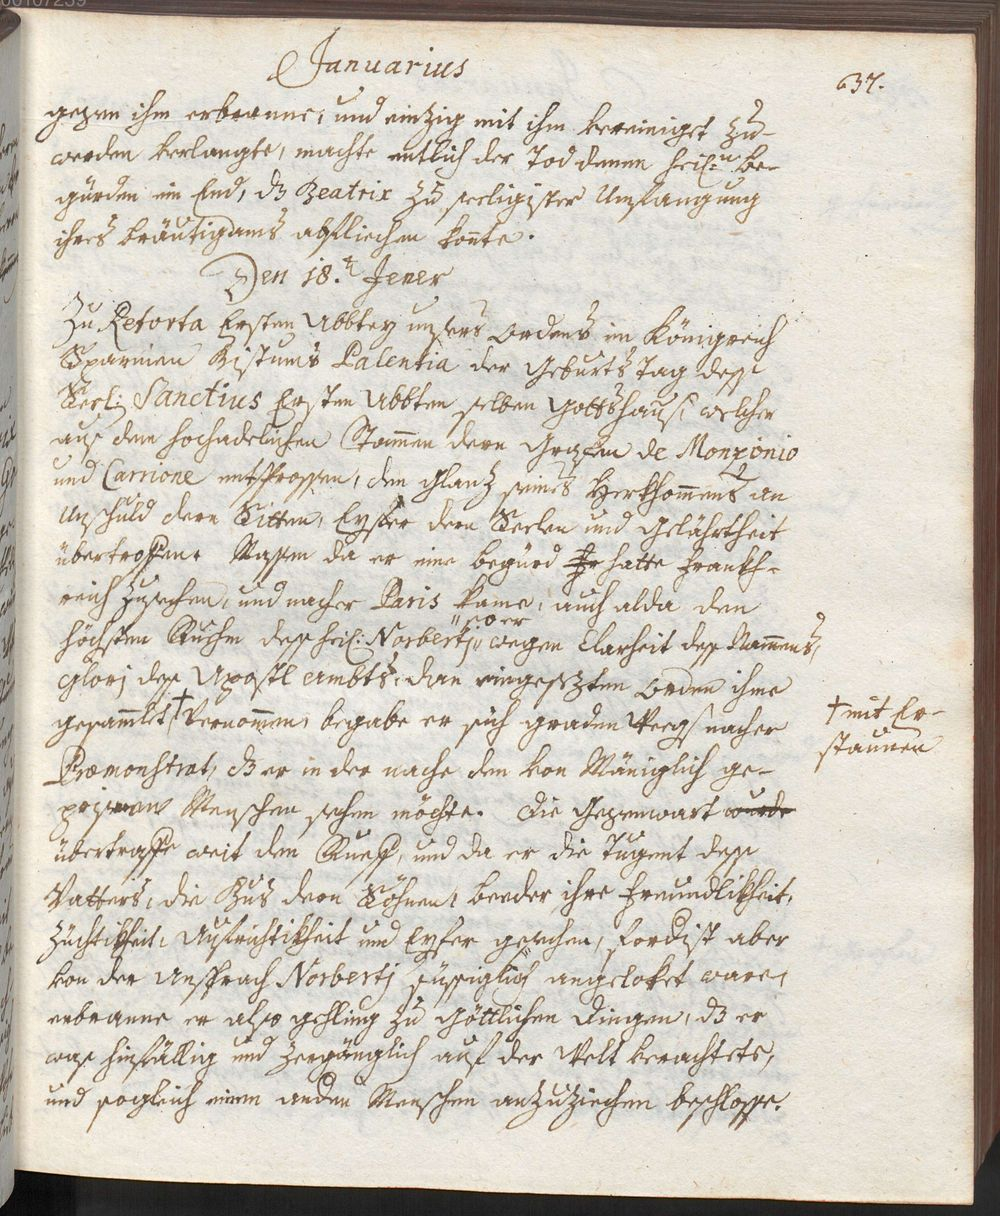 00107239
Januarius
637.
gegen ihm erbranne, und eintzig mit ihm vereiniget zu-
werden verlangte, machte entlich der Tod denen heil:n be-
gürden ein End, dz Beatrix zu seeligister Umfangung
ihres bräutigams abfliechen konte.
Den 18.t Jener
Zu Retorta Ersten Abbtey unsers Ordens im Königreich
Spannien Bistums Palentia der Geburts Tag dess
Seeli: Sanctius Ersten Abbten selben Gottshauss, welcher
aus dem hochadelichen Stammen dern Grafen de Monzonio
und Carrione entsprossen, den Glantz seines Herkhommens an
Unschuld dern Sitten, Eyffer dern Seelen und Gelährtheit
übertroffen. Massen da er eine begürd hatte Frankh-
reich zusechen, und nacher Paris kame, auch alda den
so er
höchsten Ruehm dess heil: Norbertj wegen Clarheit dess Nammens,
Glorj dess Apostl ambts, dan eingesezten Orden ihme
gesammlet † Vernommen, begabe er sich graden Weegs nacher
† mit Er-
staunen
Præmonstrat, dz er in der nache den von Mäniglich ge-
prisenen Menschen sehen möchte. Die Gegenwart wurde
übertraffe weit den Rueff, und da er die Tugent dess
Vatters, die Bus dern Söhnen, beeder ihre Freundlikheit,
Züchtikheit, Aufrichtikheit und Eyfer gesechen, fordist aber
von der Ansprach Norbertj süssiglich angeloket ware,
enbranne er also gehling zu Göttlichen Dingen, dz er
was hinfällig und zergänglich auf der Welt verachtete,
und sogleich einen anden Menschen anzuziechen beschlosse.